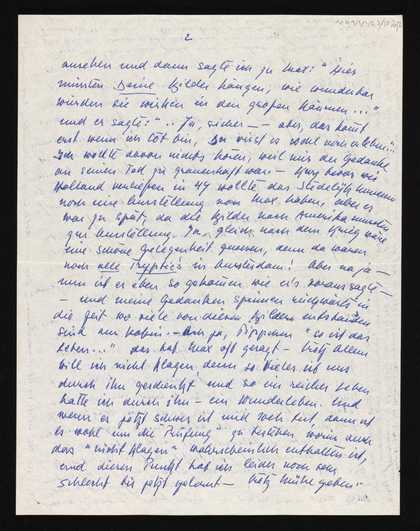 2
ansehen und dann sagte ich zu Max: "Hier
müssten Deine Bilder hängen, wie wunderbar
würden sie wirken in den großen Räumen..."
und er sagte: ".. Ja, sicher — aber, das kommt
erst wenn ich tot bin, Du wirst es wohl noch erleben".
Ich wollte davon nichts hören, weil mir der Gedanke
an seinen Tod zu grauenhaft war — Kurz bevor wir
Holland verließen in 47 wollte das Stedelijk Museum
noch eine Ausstellung von Max haben, aber es
war zu spät, da die Bilder nach Amerika mussten
zur Ausstellung. Ja, gleich nach dem Krieg wäre
eine schöne Gelegenheit gewesen, denn da waren
noch alle Tryptics in Amsterdam! Aber na ja —
nun ist es eben so gekommen wie er's voraussagte —
— und meine Gedanken spinnen rückwärts in
die Zeit wo viele von diesen Bildern entstanden
sind
"so ist das
Leben..." das hat Max oft gesagt — trotz allem
will ich nicht klagen, denn so Vieles ist uns
durch ihn geschenkt und so ein reiches Leben
hatte ich durch ihn — ein Wunderleben. Und
wenn es jetzt schwer ist und weh tut, dann ist
es wohl um die "Prüfung" zu bestehen, worin auch
das "nicht klagen" wahrscheinlich enthalten ist,
und diesen Punkt hab ich leider noch sehr
schlecht bis jetzt gelernt — trotz Mühe geben.